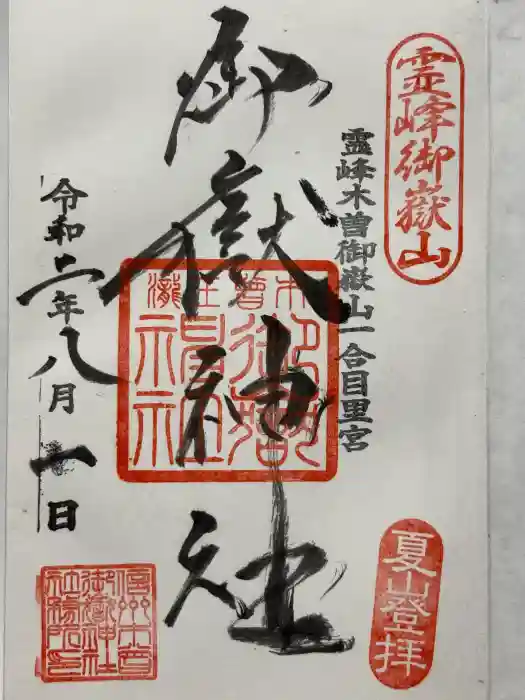 霊峰御嶽山
霊峰木曽御嶽山一合目里宮
御嶽神社
令和二年八月一日
夏山登拝
信州木曽
御嶽神社
社務所印